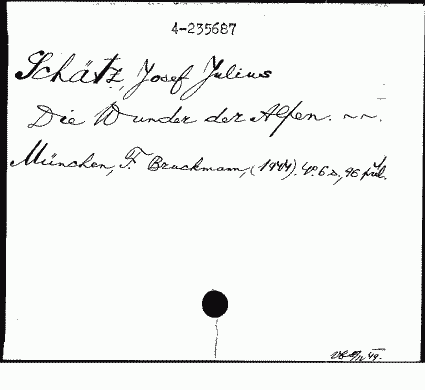 4-235687
Schätz, Josef Julius
Die Wunder der Alpen. ~~.
München, F. Bruckmann, (1944). 4º. 6 S., 96